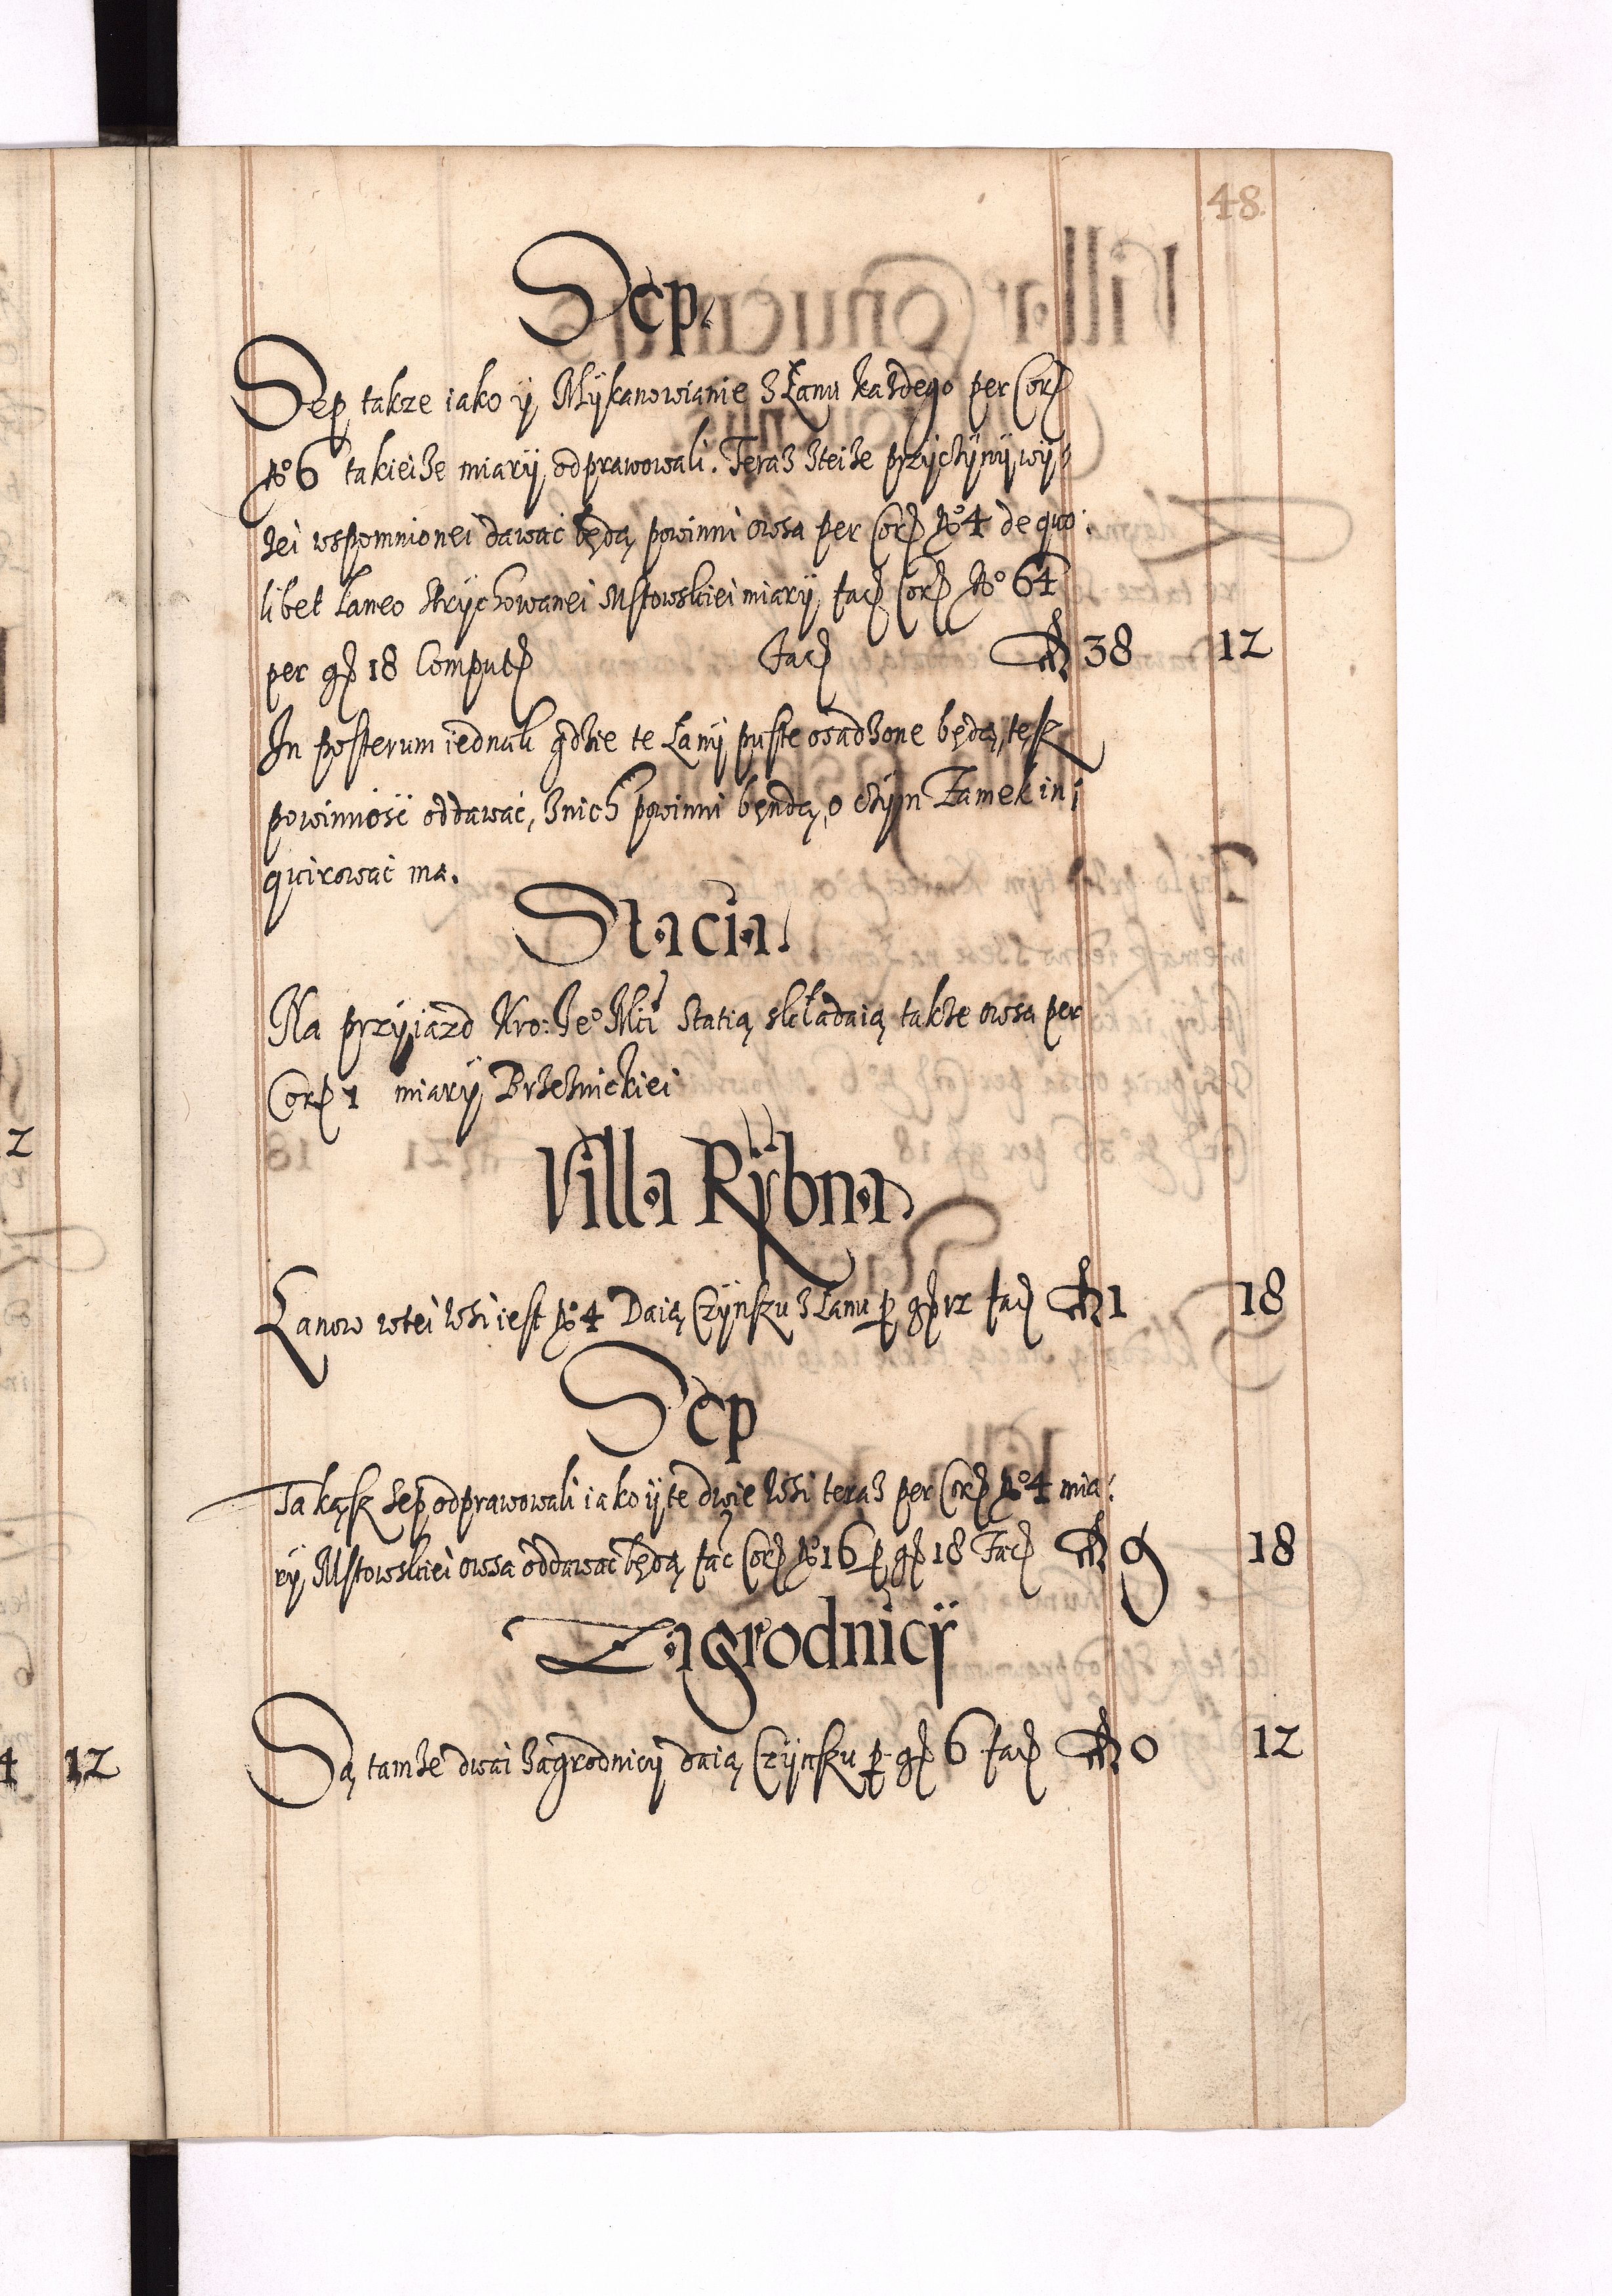 48.
Sep.
Sep takze iako ÿ Mÿkanowianie z Łanu kazdego per Cor
No 6 takieize miarÿ odprawowali. Teraz zteize przÿczÿnÿ wÿ:
zei wspomnionei dawac będą powinni owsa per Cor No 4 de quo:
libet Laneo strÿchowanei Mstowskiei miarÿ fac Cor No 64
per g 18 Comput Fac fl 38 12
In posterum iednak gdzie te Łanÿ puste osadzone będą, tęsz
powinnosc oddawac, znich powinni bęndą, o czÿm Zamek in:
quirowac ma.
Stacia.
Na przÿiazd Kro: Jeo Mci Statią składaią takze owsa per
Cor 1 miarÿ Brzeznickiei
Villa Rÿbna
Łanow wtei wsi iest No 4 Daią Czÿnszu z Łanu p g 12 fac fl 1 18
Sep
Takąsz sep odprawowali iako ÿ te dwie wsi teraz per Cor No 4 mia:
rÿ Mstowskiei owsa oddawac będą fac Cor No 16 p g 18 Fac fl 9 18
Zagrodnicÿ
Są tamze dwai zagrodnicÿ daią Czÿnszu p g 6 fac fl 0 12
2
4 12